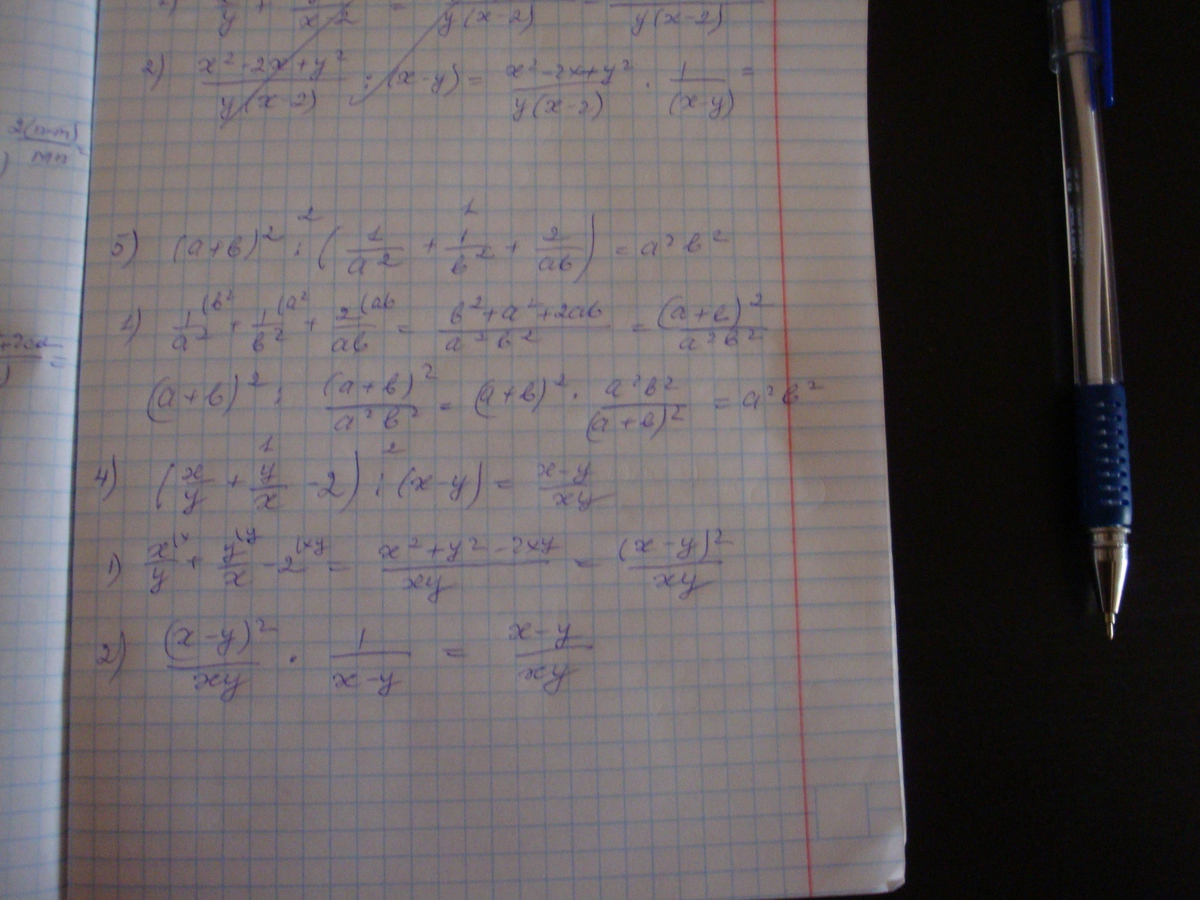 y + x-2 = y(x-2) = y(x-2)
2) (x²-2x+y²)/(y(x-2)) : (x-y) = (x²-2x+y²)/(y(x-2)) · 1/(x-y) =
2 1
5) (a+b)² : (1/a² + 1/b² + 2/ab) = a²b²
1) 1/a² (b² + 1/b² (a² + 2/ab (ab = (b²+a²+2ab)/(a²b²) = (a+b)²/(a²b²)
(a+b)² : (a+b)²/(a²b²) = (a+b)² · a²b²/(a+b)² = a²b²
1 2
4) (x/y + y/x - 2) : (x-y) = (x-y)/(xy)
1) x/y (x + y/x (y - 2 (xy = (x²+y²-2xy)/(xy) = (x-y)²/(xy)
2) (x-y)²/(xy) · 1/(x-y) = (x-y)/(xy)